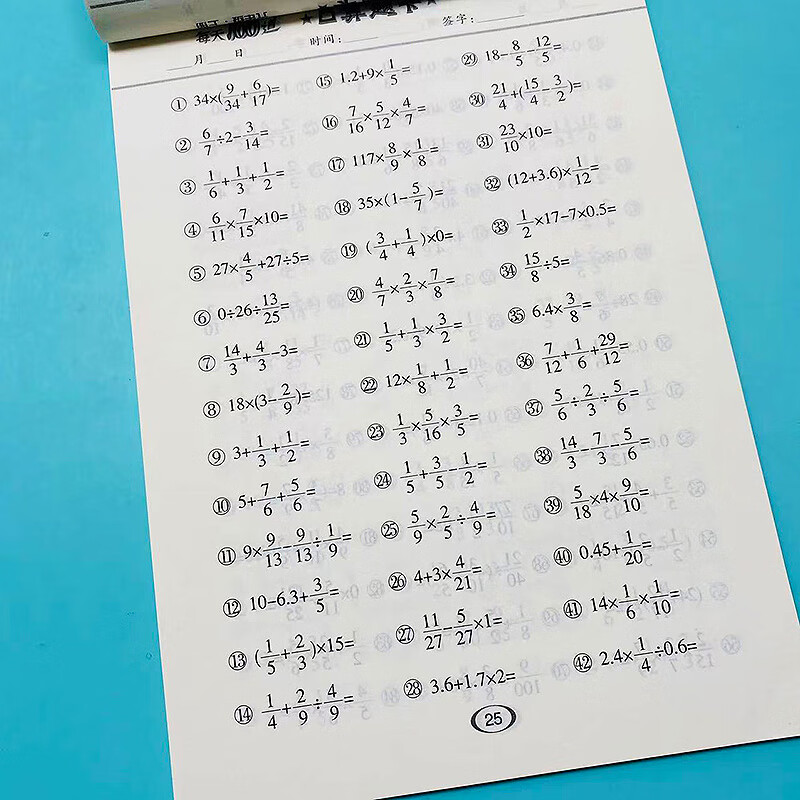 每天100道
月 日 时间: 签字:
① 34×(9/34+6/17)=
② 6/7÷2−3/14=
③ 1/6+1/3+1/2=
④ 6/11×7/15×10=
⑤ 27×4/5+27÷5=
⑥ 0÷26÷13/25=
⑦ 14/3+4/3−3=
⑧ 18×(3−2/9)=
⑨ 3+1/3+1/2=
⑩ 5+7/6+5/6=
⑪ 9×9/13−9/13÷1/9=
⑫ 10−6.3+3/5=
⑬ (1/5+2/3)×15=
⑭ 1/4+2/9÷4/9=
⑮ 1.2+9×1/5=
⑯ 7/16×5/12×4/7=
⑰ 117×8/9×1/8=
⑱ 35×(1−5/7)=
⑲ (3/4+1/4)×0=
⑳ 4/7×2/3×7/8=
㉑ 1/5+1/3×3/2=
㉒ 12×1/8+1/2=
㉓ 1/3×5/16×3/5=
㉔ 1/5+3/5−1/2=
㉕ 5/9×2/5÷4/9=
㉖ 4+3×4/21=
㉗ 11/27−5/27×1=
㉘ 3.6+1.7×2=
㉙ 18−8/5−12/5=
㉚ 21/4+(15/4−3/2)=
㉛ 23/10×10=
㉜ (12+3.6)×1/12=
㉝ 1/2×17−7×0.5=
㉞ 15/8÷5=
㉟ 6.4×3/8=
㊱ 7/12+1/6+29/12=
㊲ 5/6÷2/3÷5/6=
㊳ 14/3−7/3−5/6=
㊴ 5/18×4×9/10=
㊵ 0.45+1/20=
㊶ 14×1/6×1/10=
㊷ 2.4×1/4÷0.6=
25